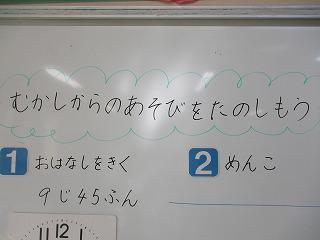 むかしからのあそびをたのしもう
1 おはなしをきく
9じ45ふん
2 めんこ
11 12 1